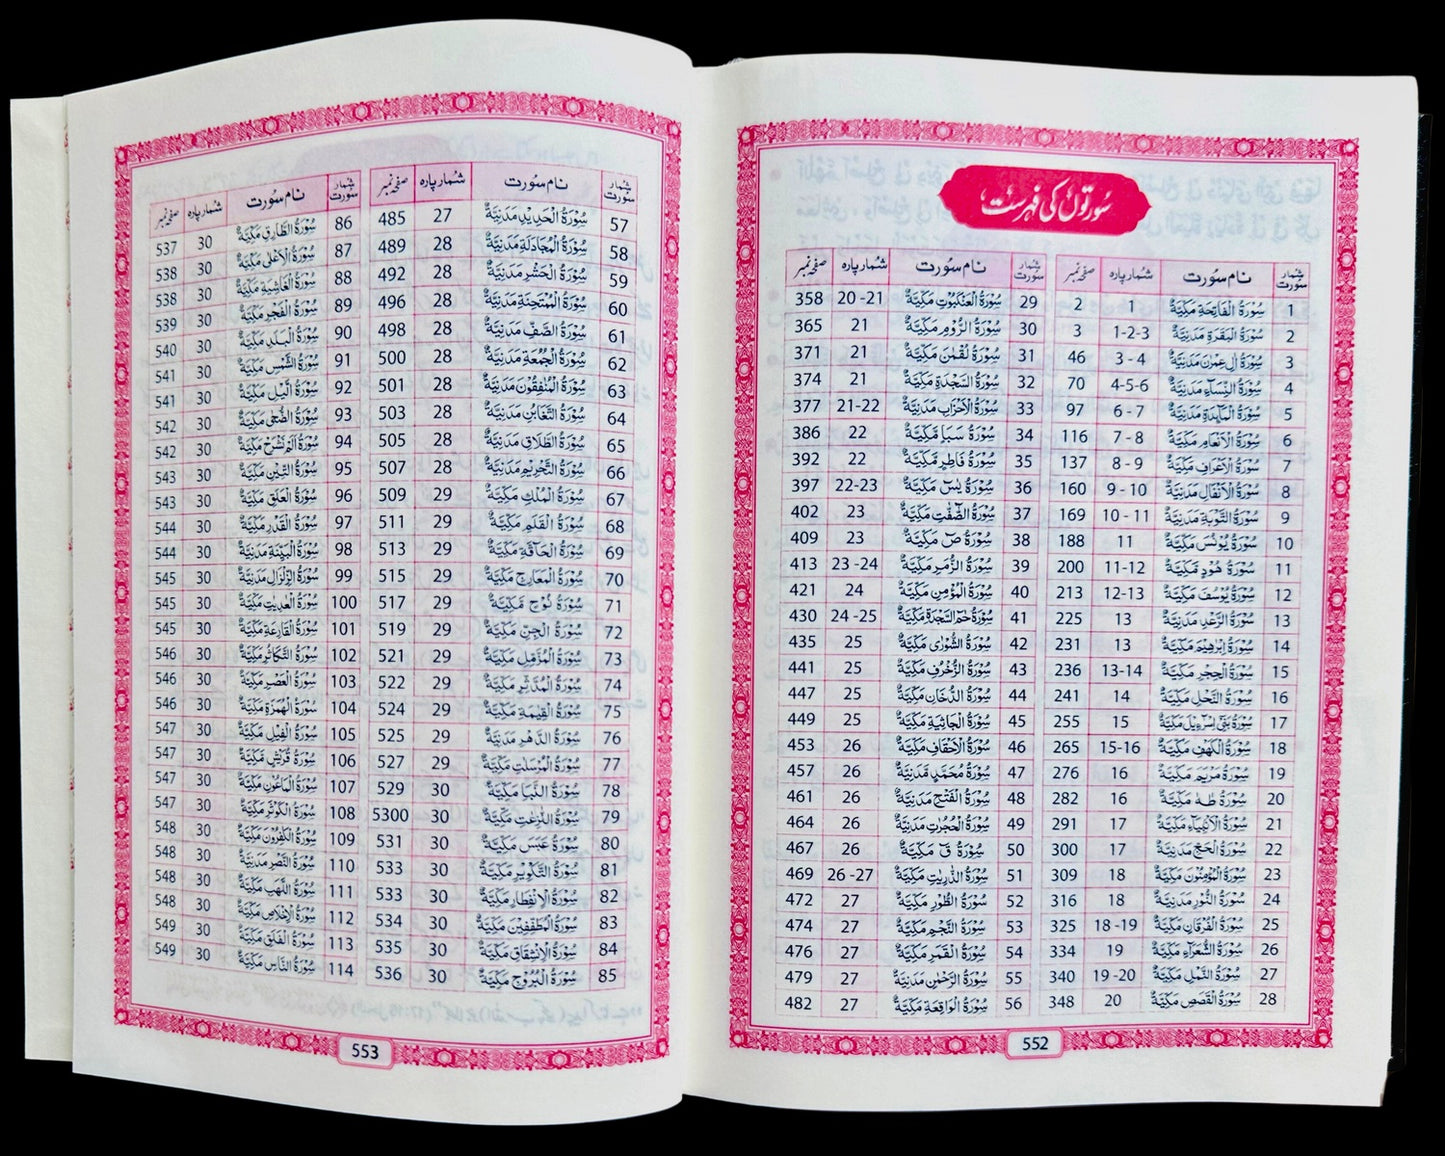 سُورتوں کی فہرست
شمار سورت نام سُورت شمار پارہ صفحہ نمبر
1 سُوْرَۃُ الْفَاتِحَۃِ مَکِّیَّۃٌ 1 2
2 سُوْرَۃُ الْبَقَرَۃِ مَدَنِیَّۃٌ 1-2-3 3
3 سُوْرَۃُ اٰلِ عِمْرٰنَ مَدَنِیَّۃٌ 3 - 4 46
4 سُوْرَۃُ النِّسَآءِ مَدَنِیَّۃٌ 4-5-6 70
5 سُوْرَۃُ الْمَآئِدَۃِ مَدَنِیَّۃٌ 6 - 7 97
6 سُوْرَۃُ الْاَنْعَامِ مَکِّیَّۃٌ 7 - 8 116
7 سُوْرَۃُ الْاَعْرَافِ مَکِّیَّۃٌ 8 - 9 137
8 سُوْرَۃُ الْاَنْفَالِ مَدَنِیَّۃٌ 9 - 10 160
9 سُوْرَۃُ التَّوْبَۃِ مَدَنِیَّۃٌ 10 - 11 169
10 سُوْرَۃُ یُوْنُسَ مَکِّیَّۃٌ 11 188
11 سُوْرَۃُ ھُوْدٍ مَّکِّیَّۃٌ 11-12 200
12 سُوْرَۃُ یُوْسُفَ مَکِّیَّۃٌ 12-13 213
13 سُوْرَۃُ الرَّعْدِ مَدَنِیَّۃٌ 13 225
14 سُوْرَۃُ اِبْرٰھِیْمَ مَکِّیَّۃٌ 13 231
15 سُوْرَۃُ الْحِجْرِ مَکِّیَّۃٌ 13-14 236
16 سُوْرَۃُ النَّحْلِ مَکِّیَّۃٌ 14 241
17 سُوْرَۃُ بَنِیْٓ اِسْرَآءِیْلَ مَکِّیَّۃٌ 15 255
18 سُوْرَۃُ الْکَھْفِ مَکِّیَّۃٌ 15-16 265
19 سُوْرَۃُ مَرْیَمَ مَکِّیَّۃٌ 16 276
20 سُوْرَۃُ طٰہٰ مَکِّیَّۃٌ 16 282
21 سُوْرَۃُ الْاَنْۢبِیَآءِ مَکِّیَّۃٌ 17 291
22 سُوْرَۃُ الْحَجِّ مَدَنِیَّۃٌ 17 300
23 سُوْرَۃُ الْمُؤْمِنُوْنَ مَکِّیَّۃٌ 18 309
24 سُوْرَۃُ النُّوْرِ مَدَنِیَّۃٌ 18 316
25 سُوْرَۃُ الْفُرْقَانِ مَکِّیَّۃٌ 18 -19 325
26 سُوْرَۃُ الشُّعَرَآءِ مَکِّیَّۃٌ 19 334
27 سُوْرَۃُ النَّمْلِ مَکِّیَّۃٌ 19 -20 340
28 سُوْرَۃُ الْقَصَصِ مَکِّیَّۃٌ 20 348
شمار سورت نام سُورت شمار پارہ صفحہ نمبر
29 سُوْرَۃُ الْعَنْکَبُوْتِ مَکِّیَّۃٌ 20 -21 358
30 سُوْرَۃُ الرُّوْمِ مَکِّیَّۃٌ 21 365
31 سُوْرَۃُ لُقْمٰنَ مَکِّیَّۃٌ 21 371
32 سُوْرَۃُ السَّجْدَۃِ مَکِّیَّۃٌ 21 374
33 سُوْرَۃُ الْاَحْزَابِ مَدَنِیَّۃٌ 21-22 377
34 سُوْرَۃُ سَبَاٍ مَکِّیَّۃٌ 22 386
35 سُوْرَۃُ فَاطِرٍ مَّکِّیَّۃٌ 22 392
36 سُوْرَۃُ یٰسٓ مَکِّیَّۃٌ 22-23 397
37 سُوْرَۃُ الصّٰٓفّٰتِ مَکِّیَّۃٌ 23 402
38 سُوْرَۃُ صٓ مَکِّیَّۃٌ 23 409
39 سُوْرَۃُ الزُّمَرِ مَکِّیَّۃٌ 23 -24 413
40 سُوْرَۃُ الْمُؤْمِنِ مَکِّیَّۃٌ 24 421
41 سُوْرَۃُ حٰمٓ السَّجْدَۃِ مَکِّیَّۃٌ 24 -25 430
42 سُوْرَۃُ الشُّوْرٰی مَکِّیَّۃٌ 25 435
43 سُوْرَۃُ الزُّخْرُفِ مَکِّیَّۃٌ 25 441
44 سُوْرَۃُ الدُّخَانِ مَکِّیَّۃٌ 25 447
45 سُوْرَۃُ الْجَاثِیَۃِ مَکِّیَّۃٌ 25 449
46 سُوْرَۃُ الْاَحْقَافِ مَکِّیَّۃٌ 26 453
47 سُوْرَۃُ مُحَمَّدٍ مَّدَنِیَّۃٌ 26 457
48 سُوْرَۃُ الْفَتْحِ مَدَنِیَّۃٌ 26 461
49 سُوْرَۃُ الْحُجُرٰتِ مَدَنِیَّۃٌ 26 464
50 سُوْرَۃُ قٓ مَکِّیَّۃٌ 26 467
51 سُوْرَۃُ الذّٰرِیٰتِ مَکِّیَّۃٌ 26 -27 469
52 سُوْرَۃُ الطُّوْرِ مَکِّیَّۃٌ 27 472
53 سُوْرَۃُ النَّجْمِ مَکِّیَّۃٌ 27 474
54 سُوْرَۃُ الْقَمَرِ مَکِّیَّۃٌ 27 476
55 سُوْرَۃُ الرَّحْمٰنِ مَدَنِیَّۃٌ 27 479
56 سُوْرَۃُ الْوَاقِعَۃِ مَکِّیَّۃٌ 27 482
552
شمار سورت نام سُورت شمار پارہ صفحہ نمبر
57 سُوْرَۃُ الْحَدِیْدِ مَدَنِیَّۃٌ 27 485
58 سُوْرَۃُ الْمُجَادَلَۃِ مَدَنِیَّۃٌ 28 489
59 سُوْرَۃُ الْحَشْرِ مَدَنِیَّۃٌ 28 492
60 سُوْرَۃُ الْمُمْتَحِنَۃِ مَدَنِیَّۃٌ 28 496
61 سُوْرَۃُ الصَّفِّ مَدَنِیَّۃٌ 28 498
62 سُوْرَۃُ الْجُمُعَۃِ مَدَنِیَّۃٌ 28 500
63 سُوْرَۃُ الْمُنٰفِقُوْنَ مَدَنِیَّۃٌ 28 501
64 سُوْرَۃُ التَّغَابُنِ مَدَنِیَّۃٌ 28 503
65 سُوْرَۃُ الطَّلَاقِ مَدَنِیَّۃٌ 28 505
66 سُوْرَۃُ التَّحْرِیْمِ مَدَنِیَّۃٌ 28 507
67 سُوْرَۃُ الْمُلْکِ مَکِّیَّۃٌ 29 509
68 سُوْرَۃُ الْقَلَمِ مَکِّیَّۃٌ 29 511
69 سُوْرَۃُ الْحَآقَّۃِ مَکِّیَّۃٌ 29 513
70 سُوْرَۃُ الْمَعَارِجِ مَکِّیَّۃٌ 29 515
71 سُوْرَۃُ نُوْحٍ مَّکِّیَّۃٌ 29 517
72 سُوْرَۃُ الْجِنِّ مَکِّیَّۃٌ 29 519
73 سُوْرَۃُ الْمُزَّمِّلِ مَکِّیَّۃٌ 29 521
74 سُوْرَۃُ الْمُدَّثِّرِ مَکِّیَّۃٌ 29 522
75 سُوْرَۃُ الْقِیٰمَۃِ مَکِّیَّۃٌ 29 524
76 سُوْرَۃُ الدَّھْرِ مَدَنِیَّۃٌ 29 525
77 سُوْرَۃُ الْمُرْسَلٰتِ مَکِّیَّۃٌ 29 527
78 سُوْرَۃُ النَّبَاِ مَکِّیَّۃٌ 30 529
79 سُوْرَۃُ النّٰزِعٰتِ مَکِّیَّۃٌ 30 5300
80 سُوْرَۃُ عَبَسَ مَکِّیَّۃٌ 30 531
81 سُوْرَۃُ التَّکْوِیْرِ مَکِّیَّۃٌ 30 533
82 سُوْرَۃُ الْاِنْفِطَارِ مَکِّیَّۃٌ 30 533
83 سُوْرَۃُ الْمُطَفِّفِیْنَ مَکِّیَّۃٌ 30 534
84 سُوْرَۃُ الْاِنْشِقَاقِ مَکِّیَّۃٌ 30 535
85 سُوْرَۃُ الْبُرُوْجِ مَکِّیَّۃٌ 30 536
شمار سورت نام سُورت شمار پارہ صفحہ نمبر
86 سُوْرَۃُ الطَّارِقِ مَکِّیَّۃٌ 30 537
87 سُوْرَۃُ الْاَعْلٰی مَکِّیَّۃٌ 30 538
88 سُوْرَۃُ الْغَاشِیَۃِ مَکِّیَّۃٌ 30 538
89 سُوْرَۃُ الْفَجْرِ مَکِّیَّۃٌ 30 539
90 سُوْرَۃُ الْبَلَدِ مَکِّیَّۃٌ 30 540
91 سُوْرَۃُ الشَّمْسِ مَکِّیَّۃٌ 30 541
92 سُوْرَۃُ الَّیْلِ مَکِّیَّۃٌ 30 541
93 سُوْرَۃُ الضُّحٰی مَکِّیَّۃٌ 30 542
94 سُوْرَۃُ اَلَمْ نَشْرَحْ مَکِّیَّۃٌ 30 542
95 سُوْرَۃُ التِّیْنِ مَکِّیَّۃٌ 30 543
96 سُوْرَۃُ الْعَلَقِ مَکِّیَّۃٌ 30 543
97 سُوْرَۃُ الْقَدْرِ مَکِّیَّۃٌ 30 544
98 سُوْرَۃُ الْبَیِّنَۃِ مَدَنِیَّۃٌ 30 544
99 سُوْرَۃُ الزِّلْزَالِ مَدَنِیَّۃٌ 30 545
100 سُوْرَۃُ الْعٰدِیٰتِ مَکِّیَّۃٌ 30 545
101 سُوْرَۃُ الْقَارِعَۃِ مَکِّیَّۃٌ 30 545
102 سُوْرَۃُ التَّکَاثُرِ مَکِّیَّۃٌ 30 546
103 سُوْرَۃُ الْعَصْرِ مَکِّیَّۃٌ 30 546
104 سُوْرَۃُ الْھُمَزَۃِ مَکِّیَّۃٌ 30 546
105 سُوْرَۃُ الْفِیْلِ مَکِّیَّۃٌ 30 547
106 سُوْرَۃُ قُرَیْشٍ مَّکِّیَّۃٌ 30 547
107 سُوْرَۃُ الْمَاعُوْنِ مَکِّیَّۃٌ 30 547
108 سُوْرَۃُ الْکَوْثَرِ مَکِّیَّۃٌ 30 547
109 سُوْرَۃُ الْکٰفِرُوْنَ مَکِّیَّۃٌ 30 548
110 سُوْرَۃُ النَّصْرِ مَدَنِیَّۃٌ 30 548
111 سُوْرَۃُ اللَّھَبِ مَکِّیَّۃٌ 30 548
112 سُوْرَۃُ الْاِخْلَاصِ مَکِّیَّۃٌ 30 548
113 سُوْرَۃُ الْفَلَقِ مَکِّیَّۃٌ 30 549
114 سُوْرَۃُ النَّاسِ مَکِّیَّۃٌ 30 549
553